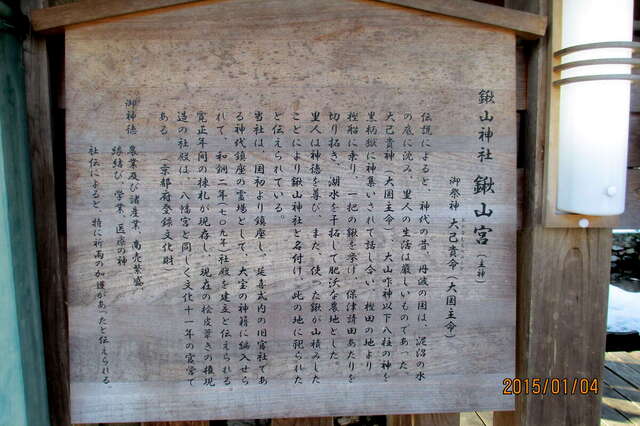 鍬山神社 鍬山宮(主神)
御祭神 大己貴命(大国主命)
伝説によると、神代の昔、丹波の国は、泥沼の水
の底に沈み、里人の生活は厳しいものであった。
大己貴神(大国主命)大山咋神以下八柱の神を
黒柄嶽に神集いされて話し合い、樫田の地より
樫船に乗り、一把の鍬を挙げ、保津請田あたりを
切り拓き、湖水を干拓して肥沃な農地とした。
里人は神徳を尊び、また、使った鍬が山積みした
ことにより鍬山神社と名付け、此の地に祀られた
と伝えられている。
当社は、国初より鎮座し、延喜式内の旧官社であ
る神代鎮座の霊場として、大宝の神籍に編入せら
れて、和銅二年(七〇九年)社殿を建立と伝えられる。
寛正年間の棟札が現存し、現在の桧皮葺きの権現
造の社殿は、八幡宮と同じく文化十一年の営営で
ある。(京都府登録文化財)
御神徳 農業及び諸産業、商売繁盛、
縁結び、学業、医療の神
社伝によると、特に祈雨の加護があったと伝えられる。
2015/01/04